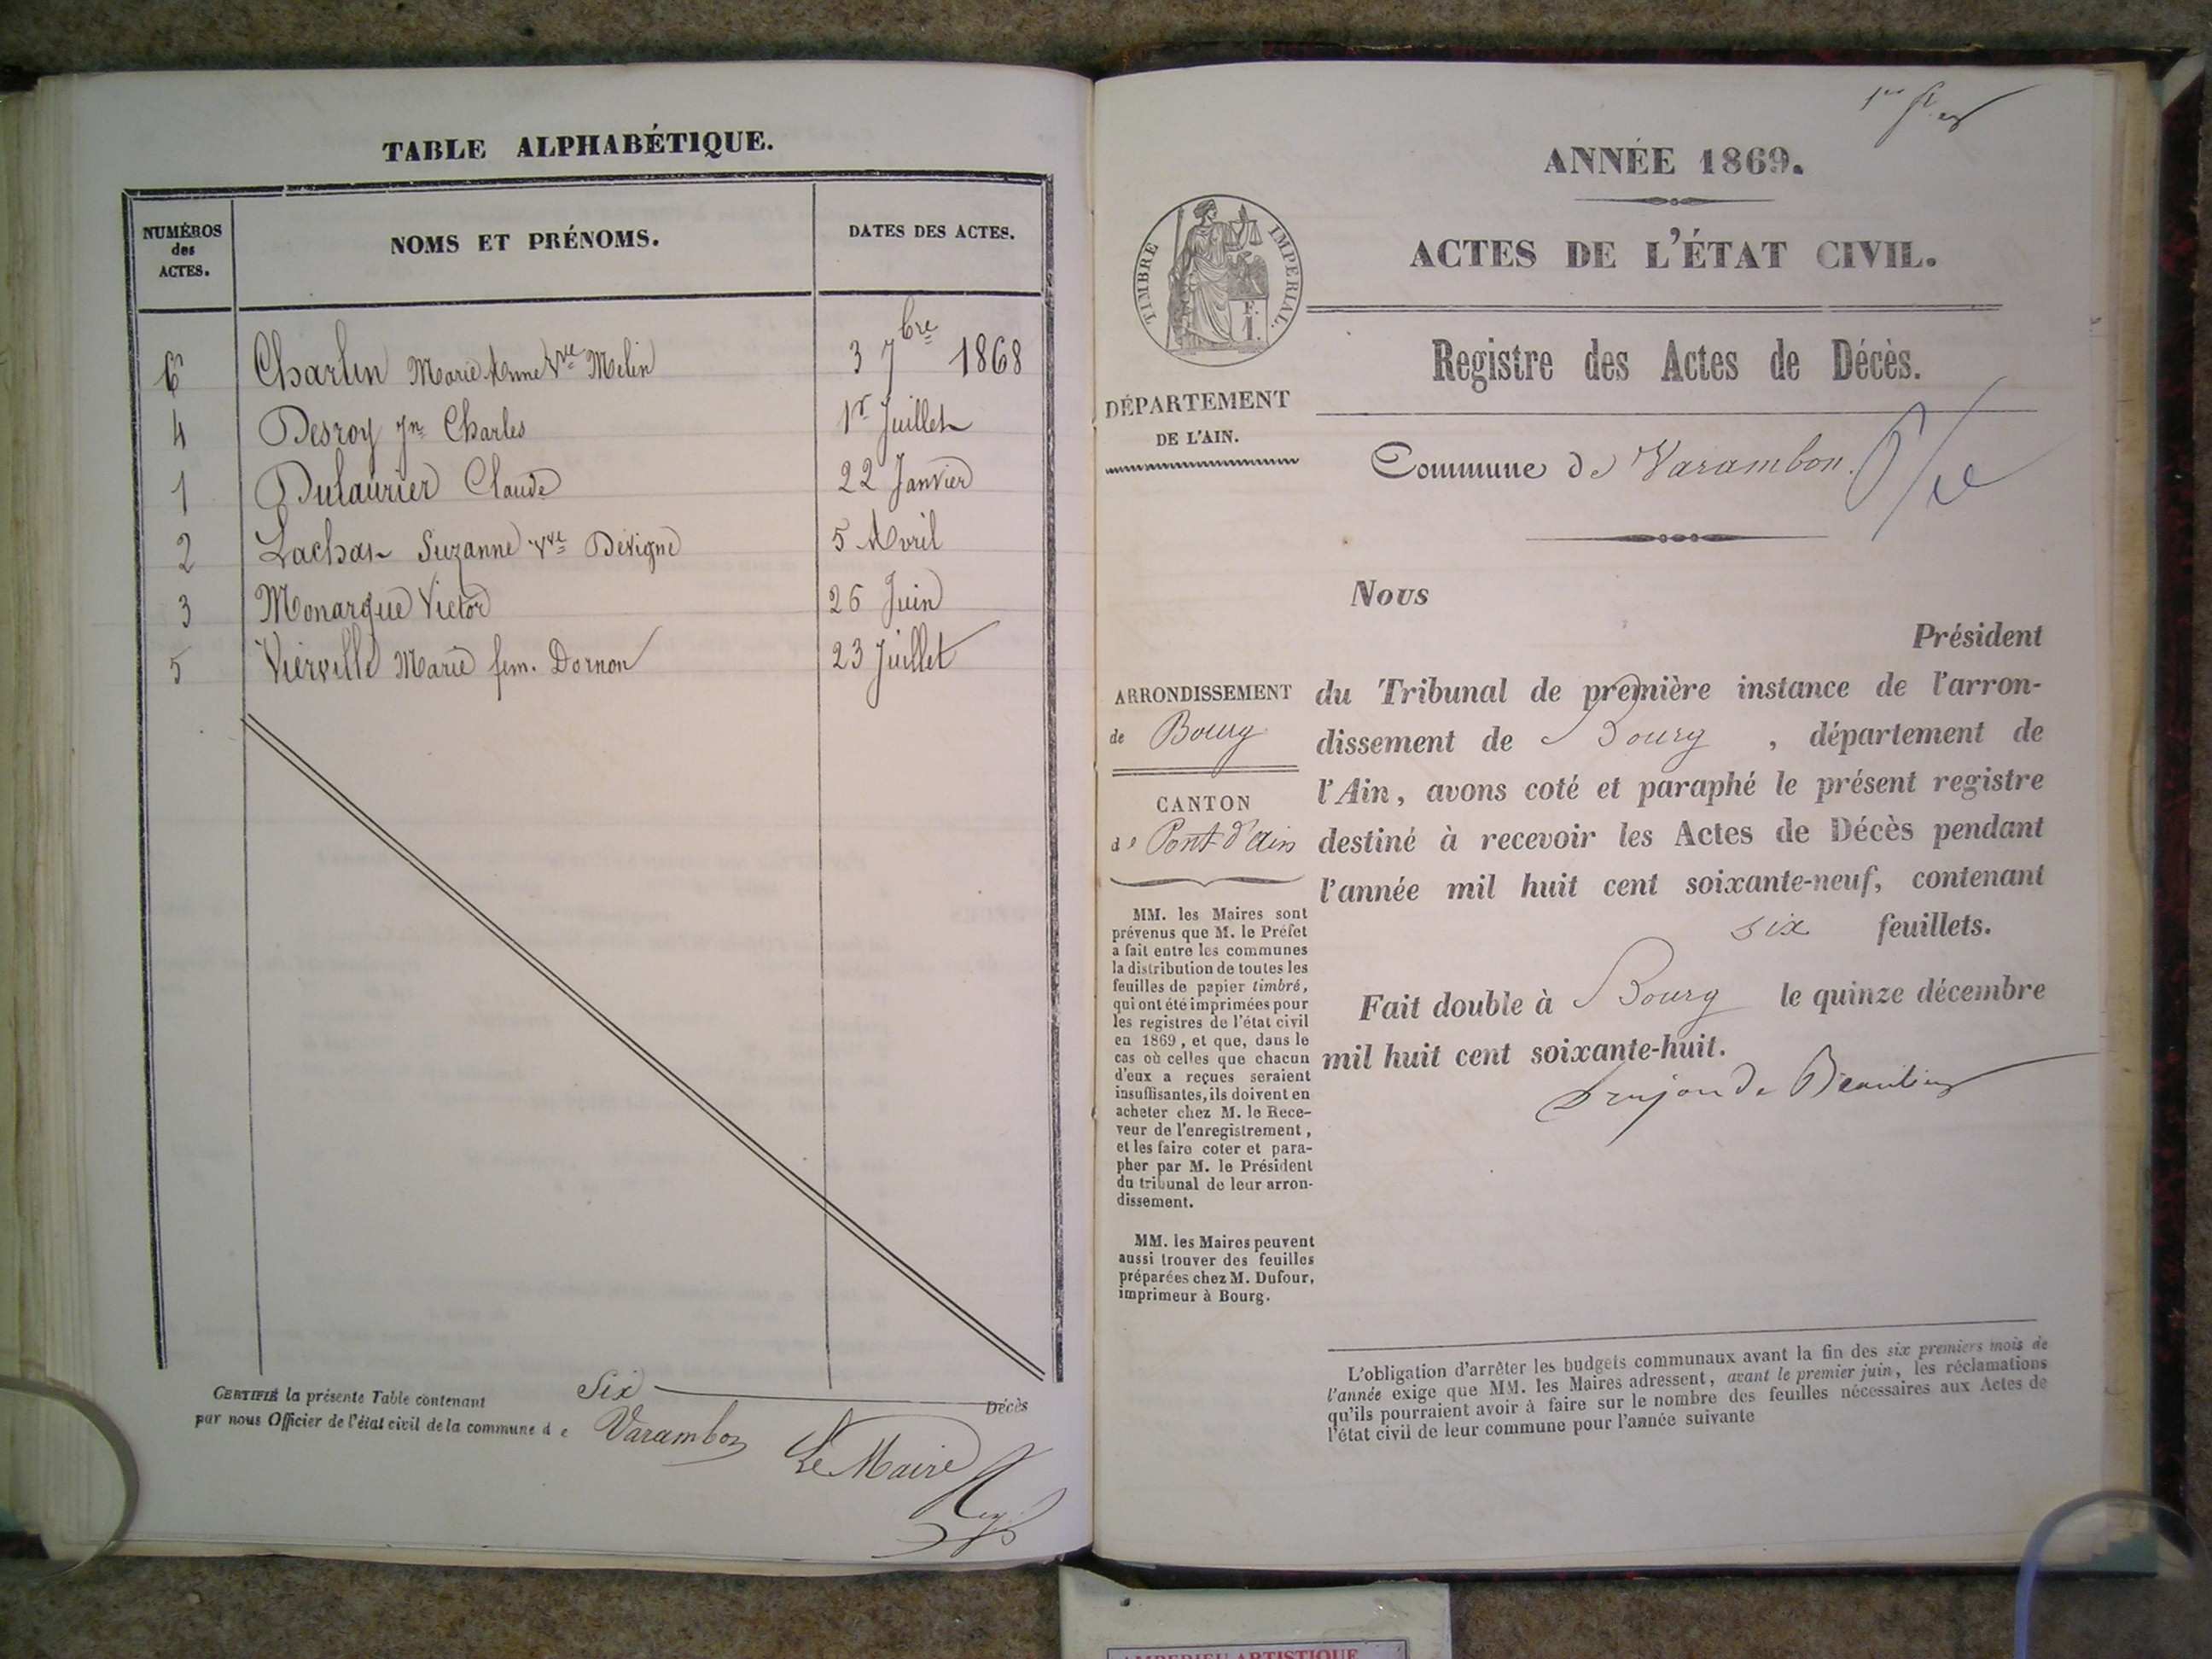 TABLE ALPHABÉTIQUE.
NUMÉROS
des
ACTES.
NOMS ET PRÉNOMS.
DATES DES ACTES.
6 Charlin Marie Anne Vve Melin 3 7bre 1868
4 Desroy Jn Charles 1r Juillet
1 Dulaurier Claude 22 Janvier
2 Lachas Suzanne vve Dévigne 5 Avril
3 Monarque Victor 26 Juin
5 Vierville Marie fem. Dornon 23 Juillet
CERTIFIÉ la présente Table contenant Six Décès
par nous Officier de l'état civil de la commune d e Varambon
Le Maire
ANNÉE 1869.
ACTES DE L'ÉTAT CIVIL.
TIMBRE IMPERIAL.
F.
1.
Registre des Actes de Décès.
DÉPARTEMENT
DE L'AIN.
Commune de Varambon.
Nous
Président
du Tribunal de première instance de l'arron-
dissement de Bourg, département de
l'Ain, avons coté et paraphé le présent registre
destiné à recevoir les Actes de Décès pendant
l'année mil huit cent soixante-neuf, contenant
six feuillets.
Fait double à Bourg le quinze décembre
mil huit cent soixante-huit.
ARRONDISSEMENT
de Bourg
CANTON
de Pont d'Ain
MM. les Maires sont
prévenus que M. le Préfet
a fait entre les communes
la distribution de toutes les
feuilles de papier timbré,
qui ont été imprimées pour
les registres de l'état civil
en 1869, et que, dans le
cas où celles que chacun
d'eux a reçues seraient
insuffisantes, ils doivent en
acheter chez M. le Rece-
veur de l'enregistrement,
et les faire coter et para-
pher par M. le Président
du tribunal de leur arron-
dissement.
MM. les Maires peuvent
aussi trouver des feuilles
préparées chez M. Dufour,
imprimeur à Bourg.
L'obligation d'arrêter les budgets communaux avant la fin des six premiers mois de
l'année exige que MM. les Maires adressent, avant le premier juin, les réclamations
qu'ils pourraient avoir à faire sur le nombre des feuilles nécessaires aux Actes de
l'état civil de leur commune pour l'année suivante
ARTISTIQUE